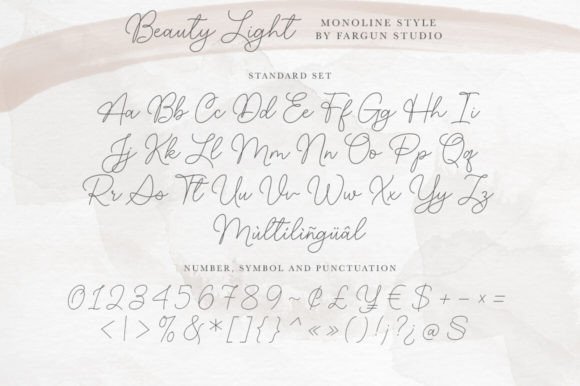 Beauty Light
MONOLINE STYLE
BY FARGUN STUDIO
STANDARD SET
Aa Bb Cc Dd Ee Ff Gg Hh Ii
Jj Kk Ll Mm Nn Oo Pp Qq
Rr Ss Tt Uu Vv Ww Xx Yy Zz
Mùltilìñgüâl
NUMBER, SYMBOL AND PUNCTUATION
0123456789~¢£¥€$+-×=
<|>%&*[]{}^«»()!¡?¿@S